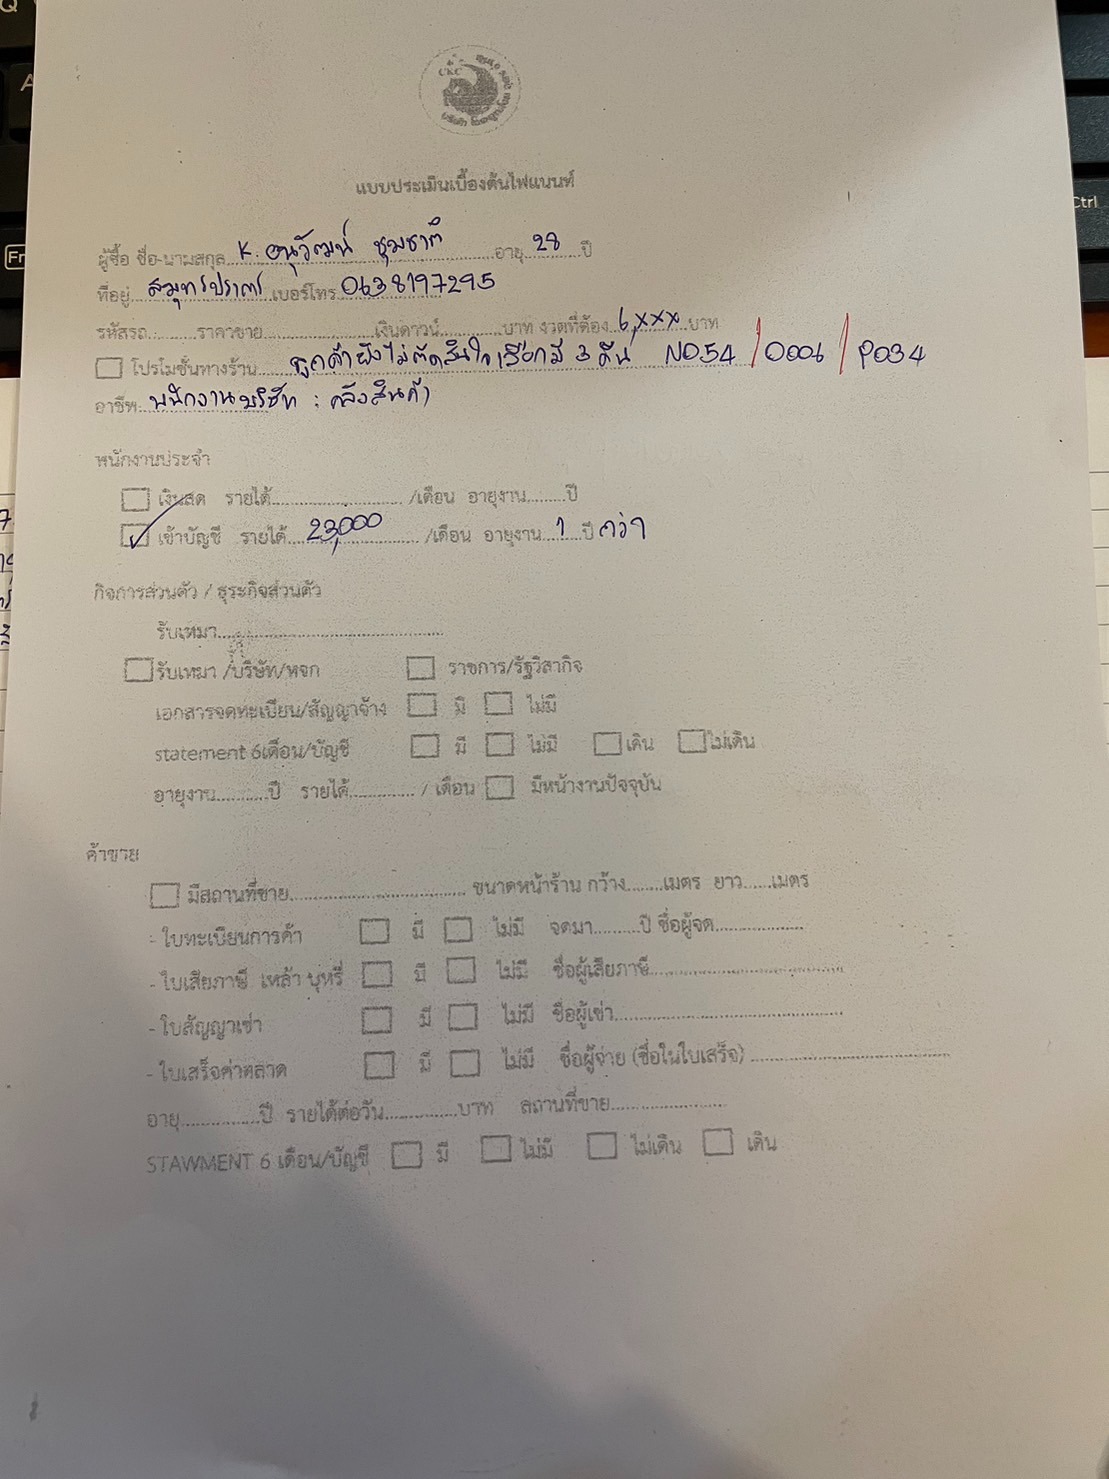 CKC
แบบประเมินเบื้องต้นไฟแนนท์
ผู้ซื้อ ชื่อ-นามสกุล K. อนุวัฒน์ ชุมชาติ อายุ 28 ปี
ที่อยู่ สมุทรปราการ เบอร์โทร 0638197295
รหัสรถ ราคาขาย เงินดาวน์ บาท งวดที่ต้อง 6,xxx บาท
โปรโมชั่นทางร้าน ลูกค้ายังไม่ตัดสินใจเลือกมี 3 คัน N054 / 0006 / P034
อาชีพ พนักงานบริษัท : คลังสินค้า
พนักงานประจำ
เงินสด รายได้ /เดือน อายุงาน ปี
เข้าบัญชี รายได้ 23,000 /เดือน อายุงาน 1 ปี กว่า
กิจการส่วนตัว / ธุระกิจส่วนตัว
รับเหมา
รับเหมา /บริษัท/หจก ราชการ/รัฐวิสากิจ
เอกสารจดทะเบียน/สัญญาจ้าง มี ไม่มี
statement 6เดือน/บัญชี มี ไม่มี เดิน ไม่เดิน
อายุงาน ปี รายได้ / เดือน มีหน้างานปัจจุบัน
ค้าขาย
มีสถานที่ขาย ขนาดหน้าร้าน กว้าง เมตร ยาว เมตร
- ใบทะเบียนการค้า มี ไม่มี จดมา ปี ชื่อผู้จด
- ใบเสียภาษี เหล้า บุหรี่ มี ไม่มี ชื่อผู้เสียภาษี
- ใบสัญญาเช่า มี ไม่มี ชื่อผู้เช่า
- ใบเสร็จค่าตลาด มี ไม่มี ชื่อผู้จ่าย (ชื่อในใบเสร็จ)
อายุ ปี รายได้ต่อวัน บาท สถานที่ขาย
STAWMENT 6 เดือน/บัญชี มี ไม่มี ไม่เดิน เดิน